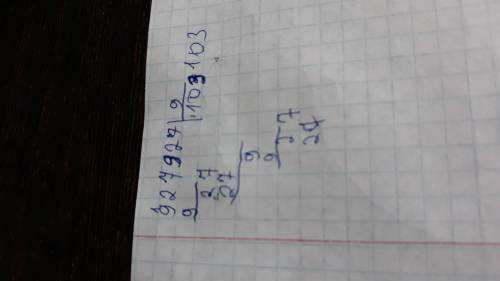 927927 | 9
9 103103
27
27
9
9
27
27